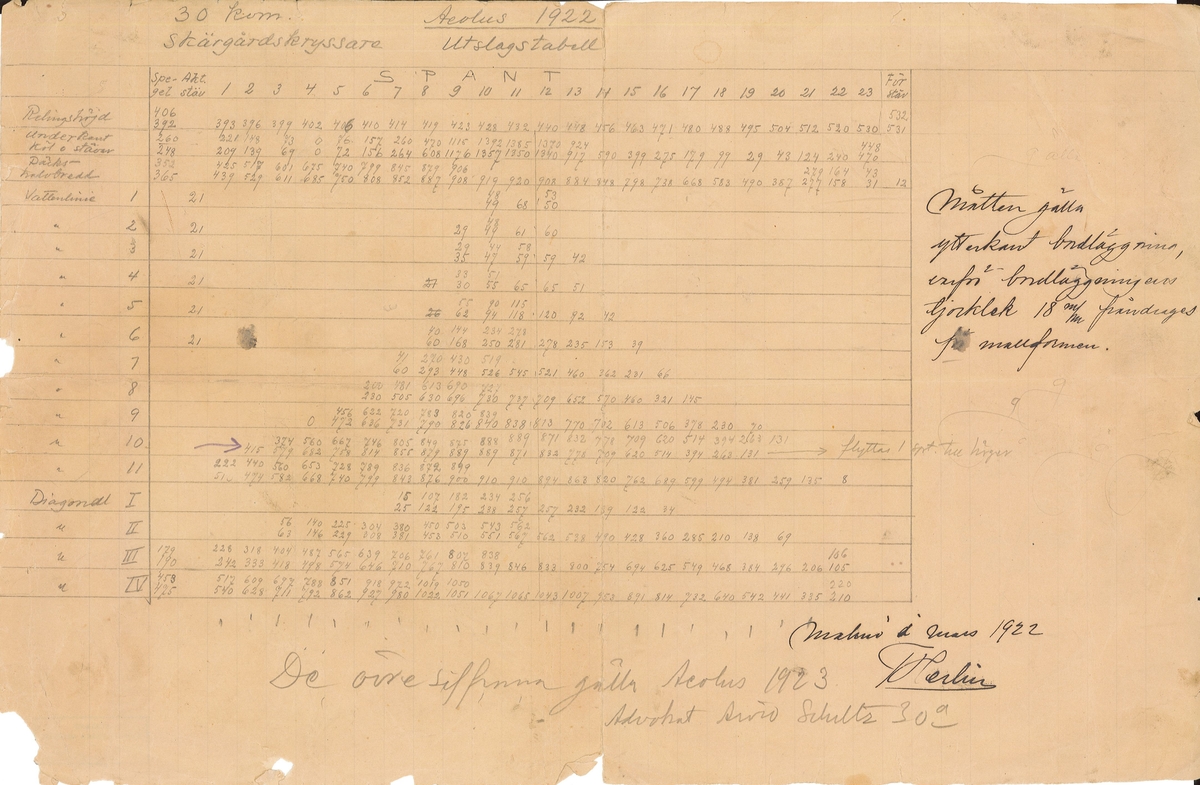 30 kvm. Aeolus 1922
Skärgårdskryssare Utslagstabell
SPANT
Spe- Akt. För
get stäv 1 2 3 4 5 6 7 8 9 10 11 12 13 14 15 16 17 18 19 20 21 22 23 stäv
406 532
Relingshöjd 392 393 396 399 402 406 410 414 419 423 428 432 440 448 456 463 471 480 488 495 504 512 520 530 531
Underkant 260 0 76 157 260 470 1115 1392 1385 1370 924 448
Köl o stävar 248 209 139 69 0 72 156 264 608 1176 1357 1350 1340 917 590 399 275 179 97 29 48 124 240 470
Däcks- 352 425 517 601 675 740 799 845 879 906 279 164 43
halvbredd 365 439 529 611 685 750 808 852 887 908 919 920 908 884 848 798 738 668 583 490 387 277 158 31 12
48 53
Vattenlinie 1 21 49 68 50
48
" 2 21 29 49 61 60
29 44 58
" 3 21 35 47 59 59 42
33 51
" 4 21 30 55 65 65 51
55 90 115
" 5 21 62 94 118 120 92 42
90 144 234 278
" 6 21 60 168 250 281 278 235 153 39
41 270 430 519
" 7 60 293 448 526 545 521 460 362 231 66
200 481 613 690
" 8 230 505 630 696 730 737 709 652 570 460 321 145
456 622 720 783 820 839
" 9 0 472 636 731 790 826 840 838 813 770 702 613 506 378 230 70
374 560 667 746 805 849 875 888 889 871 832 778 709 620 514 394 263 131
" 10 415 579 682 758 814 855 879 889 889 871 832 778 709 620 514 394 263 131 → flyttas 1 spt. till höger
222 440 560 653 728 789 836 872 899
" 11 474 582 668 740 799 843 876 900 910 910 894 863 820 762 689 599 494 381 259 135 8
15 107 182 234 256
Diagonal I 25 122 195 238 257 257 232 189 122 34
56 140 225 304 380 450 503 543 562
" II 63 146 229 308 381 453 510 551 567 562 538 490 428 360 285 210 138 69
179 228 318 404 487 565 639 706 761 807 838 106
" III 190 242 333 418 498 574 646 710 767 810 839 846 833 800 754 694 625 549 468 384 296 206 105
458 517 609 697 788 851 918 972 1019 1050 220
" IV 475 540 628 711 792 862 927 980 1022 1051 1067 1065 1043 1007 953 891 814 732 640 542 441 335 210
Måtten gälla
ytterkant bordläggning,
bordläggningens
tjocklek 18 m/m fråndrages
mallformen.
Malmö d mars 1922
De övre siffrorna gälla Aeolus 1923.
Advokat Arvid Schultz 30a